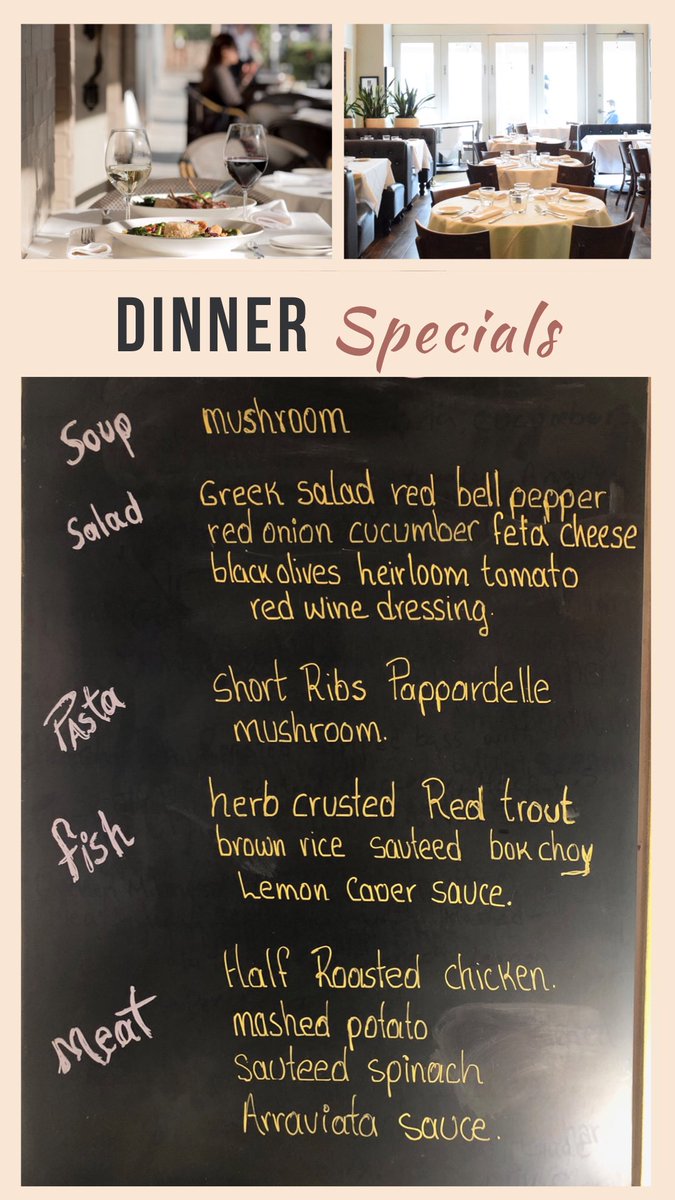 DINNER Specials
Soup mushroom
Salad Greek salad red bell pepper
red onion cucumber feta cheese
black olives heirloom tomato
red wine dressing.
Pasta Short Ribs Pappardelle
mushroom.
fish herb crusted Red trout
brown rice sauteed bok choy
Lemon Caper sauce.
Meat Half Roasted chicken.
mashed potato
sauteed spinach
Arraviata sauce.